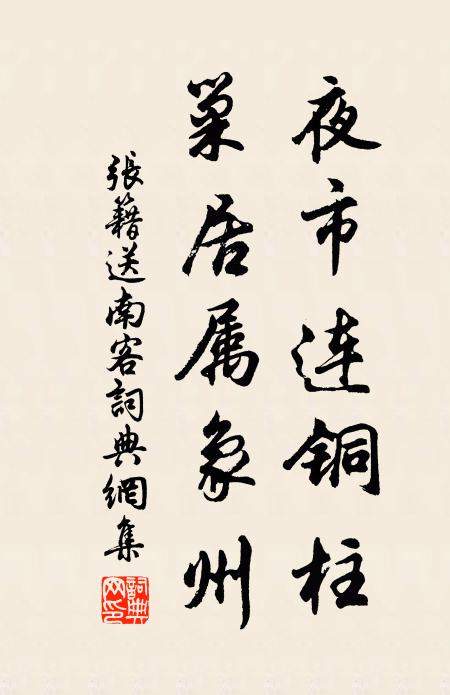 夜市连铜柱
巢居属象州
張籍送南客詞典網集
詞典网印